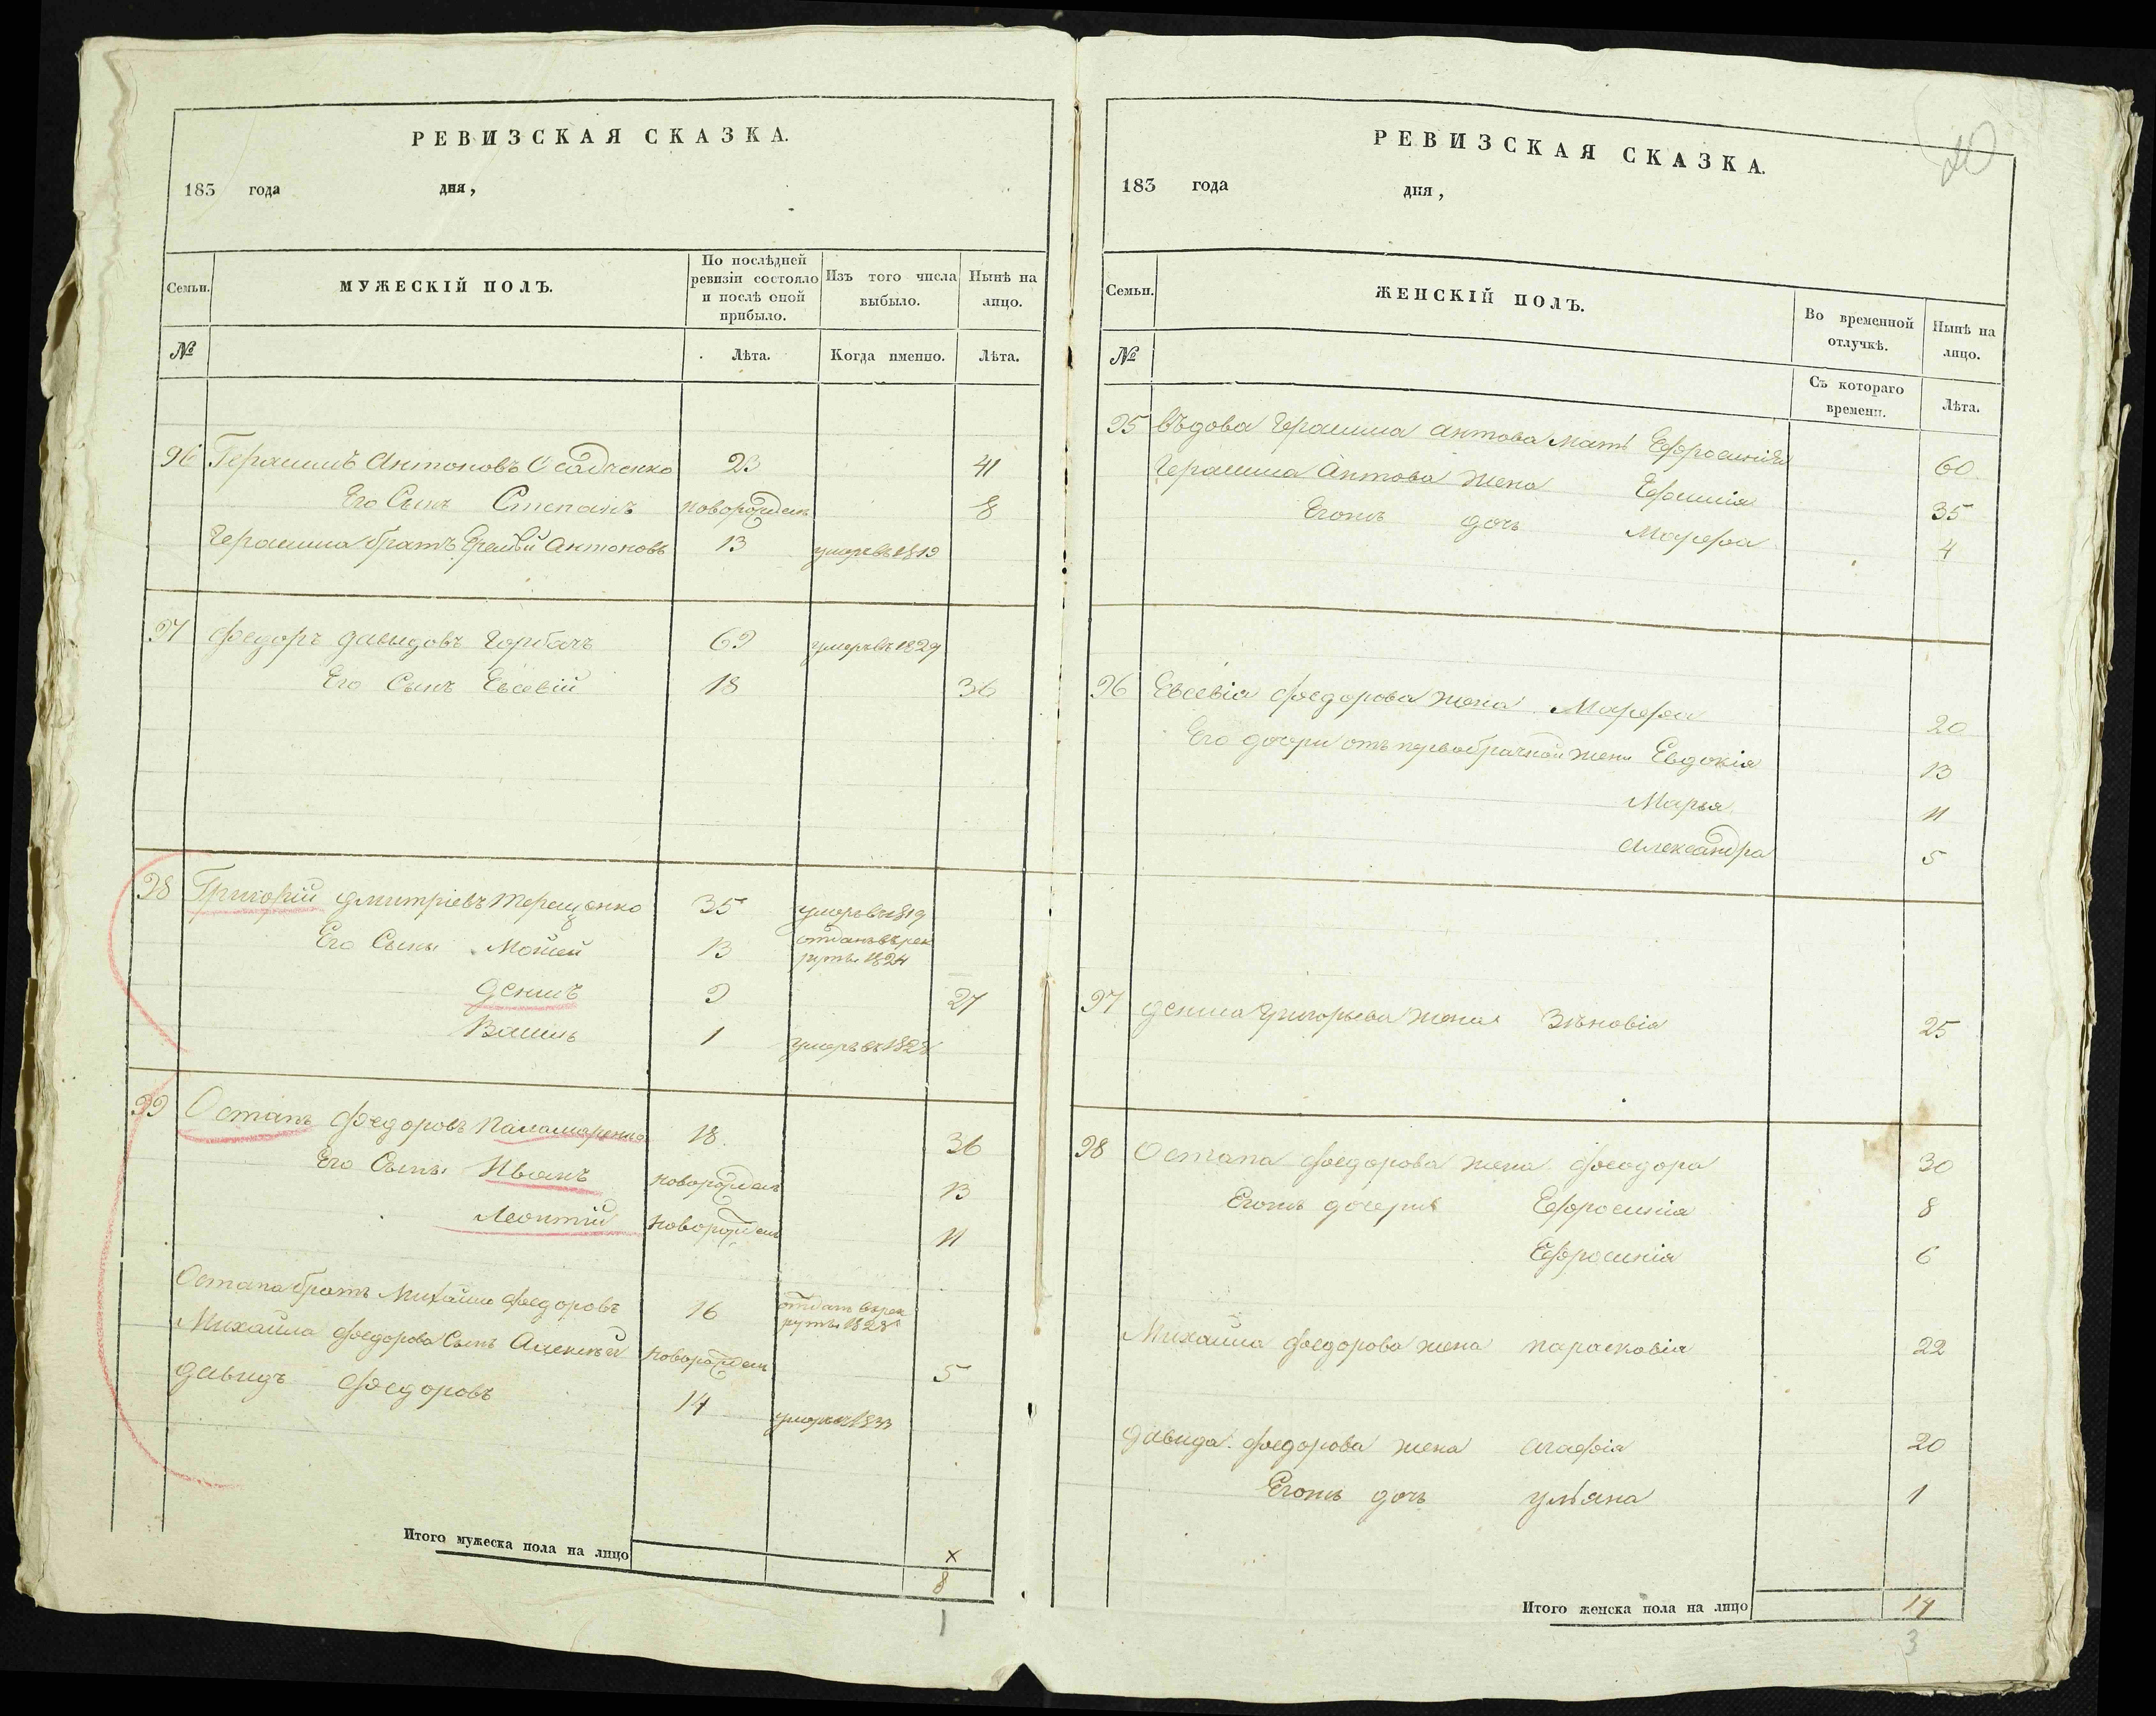 РЕВИЗСКАЯ СКАЗКА.
183 года дня,
Семьи.
МУЖЕСКІЙ ПОЛЪ.
По послѣдней ревизіи состояло и послѣ оной прибыло.
Изъ того числа выбыло.
Нынѣ на лицо.
№
Лѣта.
Когда именно.
Лѣта.
96 Герасимъ Антоновъ Осадченко 23 41
Его Сынъ Степанъ новорожден 8
Герасима братъ Еремѣй Антоновъ 13 умеръ въ 1819
97 Федоръ Давыдовъ Горбачъ 69 умеръ въ 1829
Его Сынъ Евсевій 18 36
98 Григорій Дмитріевъ Терещенко 35 умеръ въ 1819
Его Сыны Мойсей 13 отданъ въ рек
руты 1824
Денисъ 9 27
Василь 1 умеръ въ 1828
99 Остапъ Федоровъ Паламаренко 18 36
Его Сыны Иванъ новорожден 13
Леонтій новорожден 11
Остапа братъ Михайло Федоровъ 16 отданъ в рек
руты 1828
Михайла Федорова Сынъ Алексѣй новорожден 5
Давидъ Федоровъ 14 умеръ 1833
Итого мужеска пола на лицо
х
8
1
20
РЕВИЗСКАЯ СКАЗКА.
183 года дня,
Семьи.
ЖЕНСКІЙ ПОЛЪ.
Во временной отлучкѣ.
Нынѣ на лицо.
№
Съ котораго времени.
Лѣта.
95 въдова Герасима Антова мать Ефросинія 60
Герасима Антова жена 35
Егожъ дочь Марфа 4
96 Евсевія Федорова жена Марфа 20
Его дочери отъ первобрачной жены Евдокія 13
Марья 11
Александра 5
97 Дениса Григорьева жена Зѣновія 25
98 Остапа Федорова жена Феодора 30
Егожъ дочери Ефросинія 8
Ефросинія 6
Михайла Федорова жена Парасковія 22
Давида Федорова жена Агафія 20
Егожъ дочь Ульяна 1
Итого женска пола на лицо
14
3